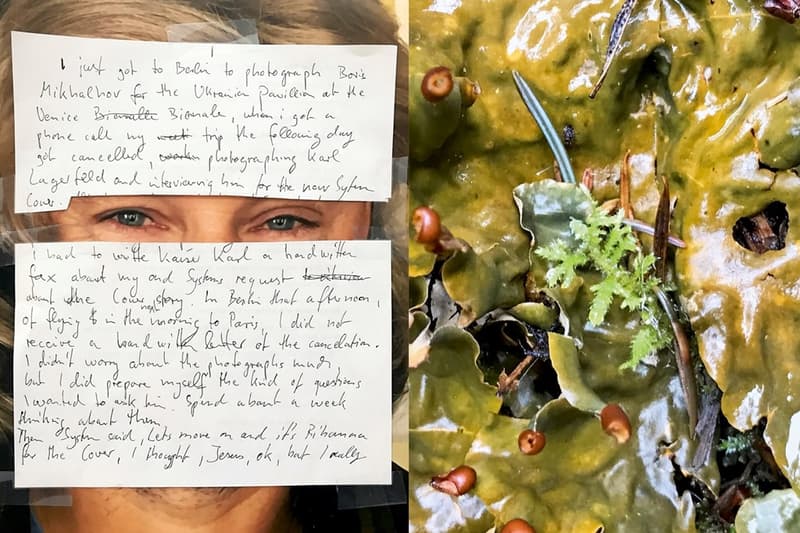 I just got to Berlin to photograph Boris
Mikhalhov for the Ukranian Pavillion at the
Venice Biannalle Bianale, when i got a
phone call my trip the following day
got cancelled, photographing Karl
Lagerfeld and interviewing him for the new System
Cover.
i had to write Kaiser Karl a handwritten
fax about my and Systems request
about the Cover story. In Berlin that afternoon,
of flying in the morning to Paris, I did not
receive a hand with letter of the cancelation.
I didn't worry about the photographs much
but I did prepare myself the kind of questions
I wanted to ask him. Spend about a week
thinking about them.
Then System said, Lets move on and it's Rihanna
for the Cover, I thought, Jesus, ok, but I really